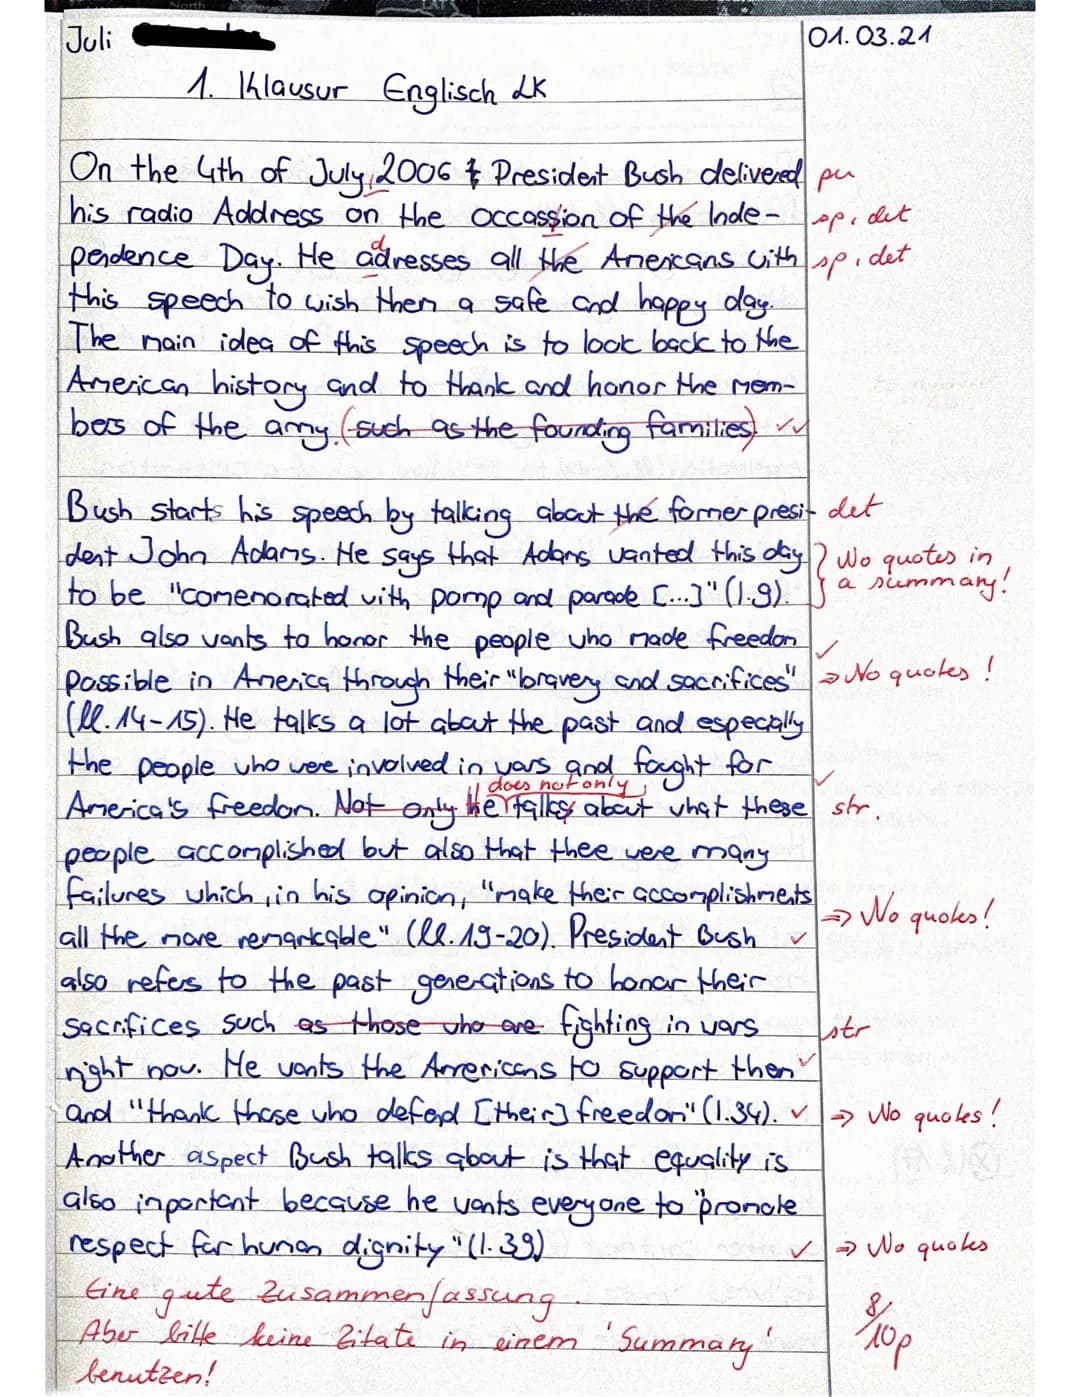 Juli
01.03.21
1. Klausur Englisch LK
On the 4th of July, 2006 President Bush delivered pu
his radio Address on the occassion of the Inde- sp, det
pendence Day. He addresses all the Americans with sp, det
this speech to wish them a safe and happy day.
The main idea of this speech is to look back to the
American history and to thank and honor the mem-
bers of the army. (such as the founding families).
Bush starts his speech by talking about the former presi- det
dent John Adams. He says that Adams wanted this day No quotes in
to be "comemorated with pomp and parade [...]" (l.9). a summary!
Bush also wants to honor the people who made freedom
possible in America through their "bravery and sacrifices" ⇒ No quotes!
(ll. 14-15). He talks a lot about the past and especially
the people who were involved in wars and fought for
does not only
America's freedom. Not only he talks about what these str.
people accomplished but also that there were many
failures which, in his opinion, "make their accomplishments
⇒ No quotes!
all the more remarkable" (ll. 19-20). President Bush
also refers to the past generations to honor their
sacrifices such as those who are fighting in wars str
right now. He wants the Americans to support them
and "thank those who defend [their] freedom" (l.34). ⇒ No quotes!
Another aspect Bush talks about is that equality is
also important because he wants everyone to "promote
respect for human dignity" (l. 39) ⇒ No quotes
Eine gute Zusammenfassung.
Aber bitte keine Zitate in einem 'Summary'
benutzen!
8/10p